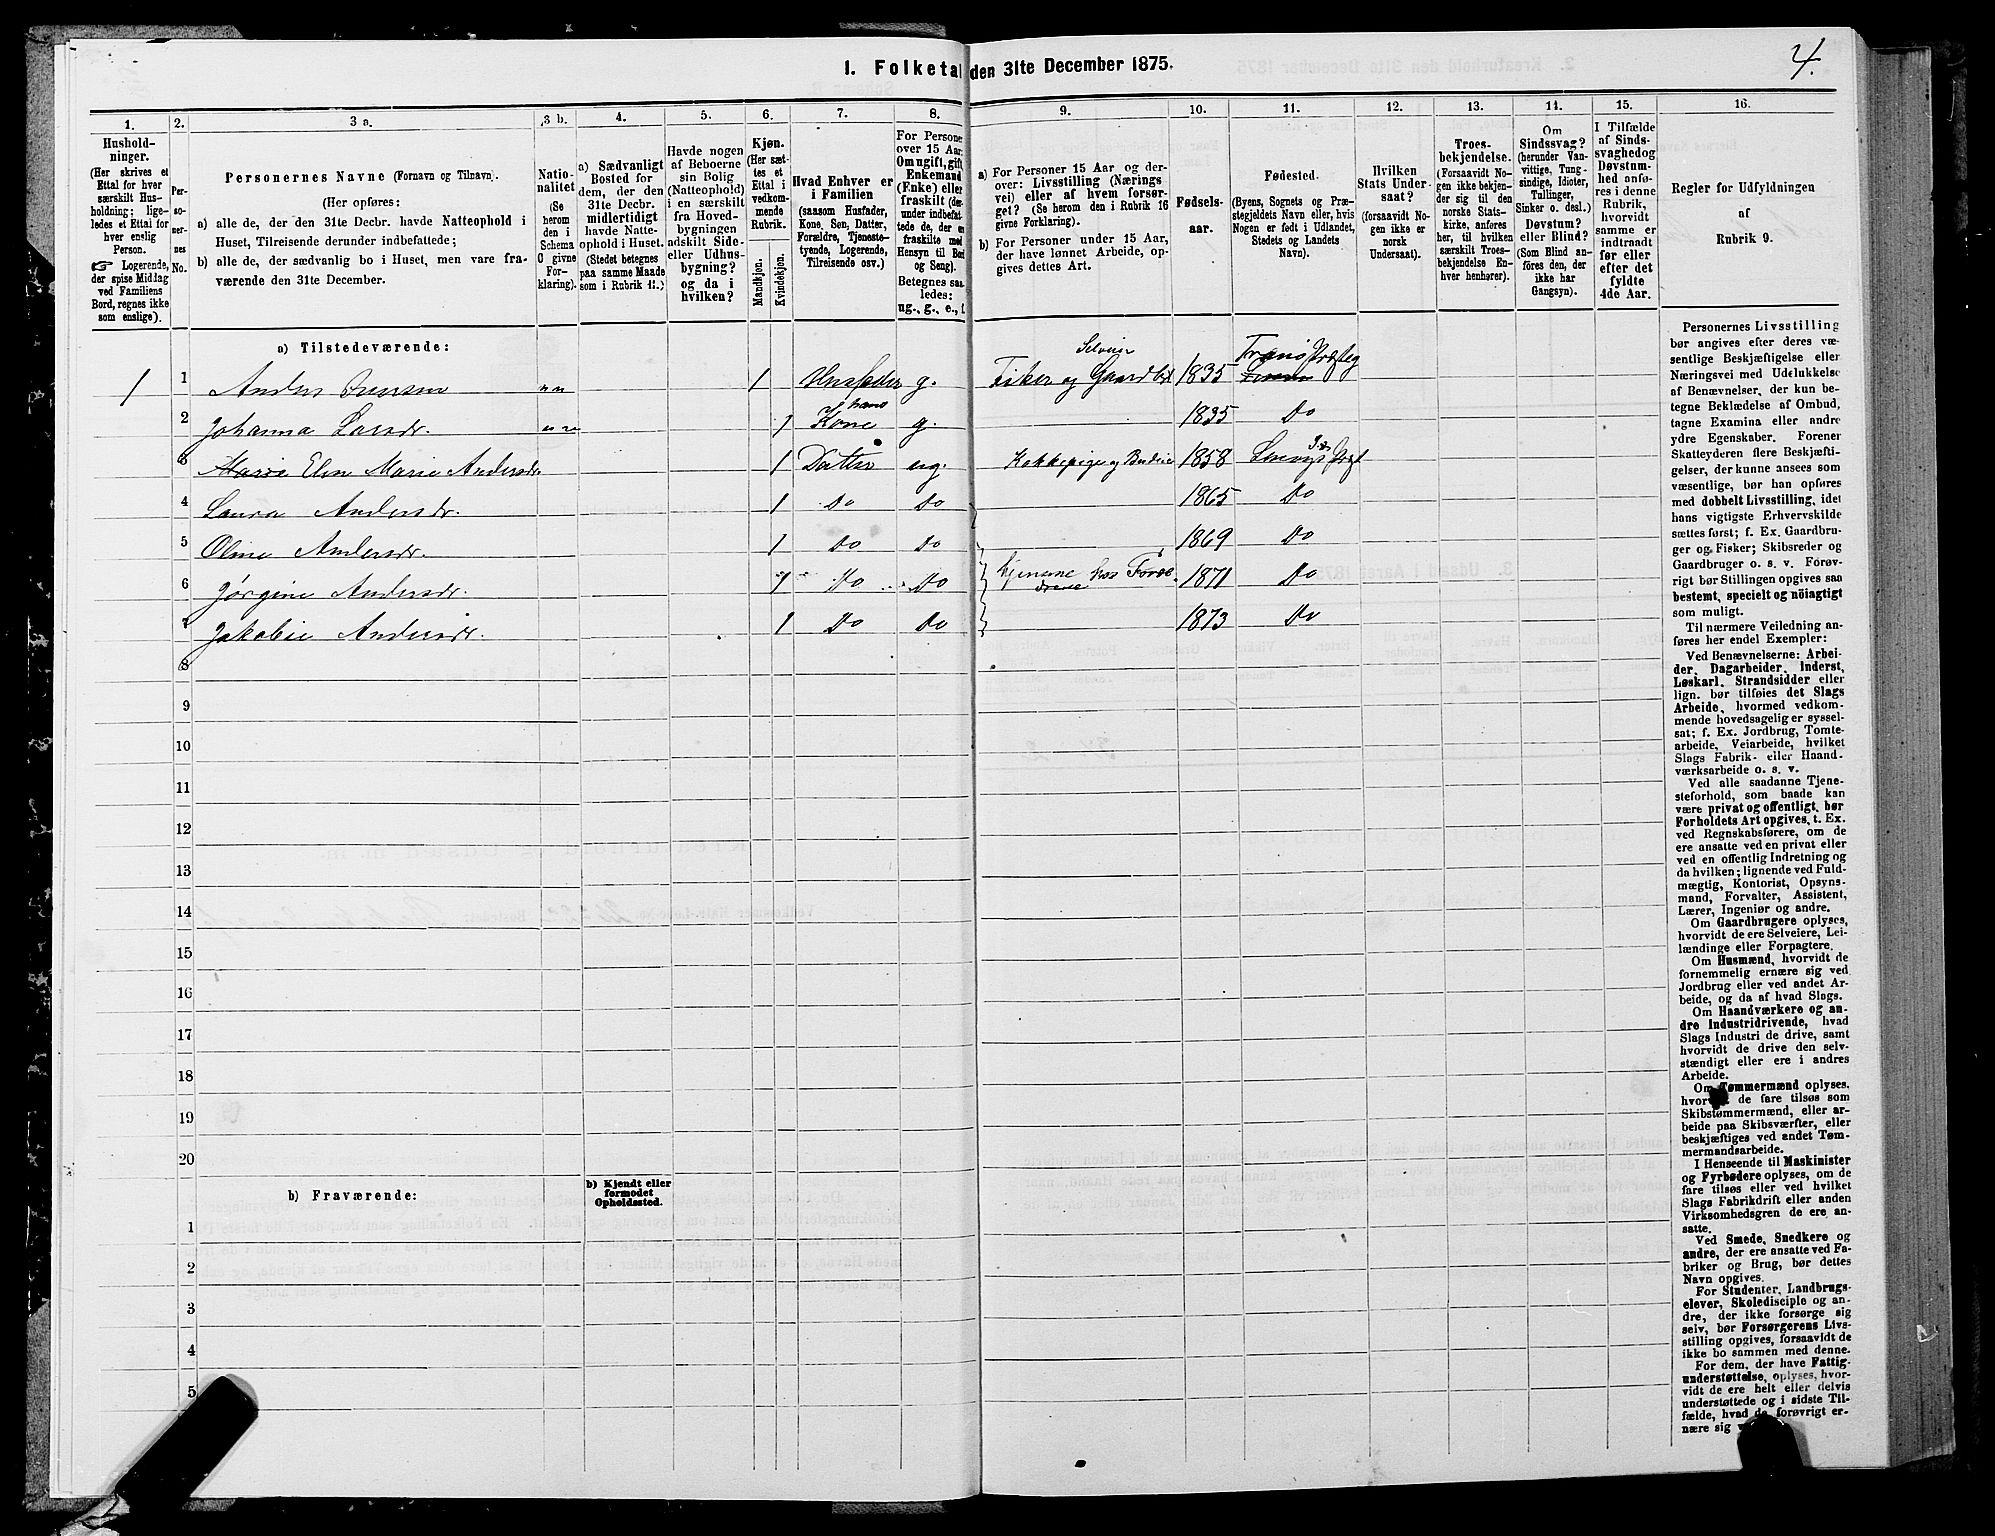 4.
1. Folketal den 31te December 1875.
1.
2.
3 a.
3 b.
4.
5.
6.
7.
8.
9.
10.
11.
12.
13.
14.
15.
16.
Hushold-
ninger.
(Her skrives et
Ettal for hver
særskilt Hus-
holdning; lige-
ledes et Ettal for
hver enslig
Person.
☞ Logerende,
der spise Middag
ved Familiens
Bord, regnes ikke
som enslige).
Per-
so-
ner-
nes
No.
Personernes Navne (Fornavn og Tilnavn).
(Her opføres:
a) alle de, der den 31te Decbr. havde Natteophold i
Huset, Tilreisende derunder indbefattede;
b) alle de, der sædvanlig bo i Huset, men vare fra-
værende den 31te December.
Natio-
nalitet
(Se
herom
den i
Schema
O givne
For-
klaring).
a) Sædvanligt
Bosted for
dem, der den
31te Decbr.
midlertidigt
havde Natte-
ophold i Huset.
(Stedet betegnes
paa samme Maade
som i Rubrik 11.)
Havde nogen
af Beboerne
sin Bolig
(Natteophold)
i en særskilt
fra Hoved-
bygningen
adskilt Side-
eller Udhus-
bygning?
og da i
hvilken?
Kjøn.
(Her sæt-
tes et
Ettal i
vedkom-
mende
Rubrik.
Mandkjøn.
Kvindekjøn.
Hvad Enhver er
i Familien
(saasom Husfader,
Kone, Søn, Datter,
Forældre, Tjeneste-
tyende, Logerende,
Tilreisende osv.)
For Personer
over 15 Aar:
Om ugift, gift,
Enkemand
(Enke) eller
fraskilt (der-
under indbefat-
tede de, der ere
fraskilte med
Hensyn til Bord
og Seng).
Betegnes saa-
ledes:
ug., g., e., f.
a) For Personer 15 Aar og der-
over: Livsstilling (Nærings
vei) eller af hvem forsør-
get? (Se herom den i Rubrik 16
givne Forklaring).
b) For Personer under 15 Aar,
der have lønnet Arbeide, op-
gives dettes Art.
Fødsels-
aar.
Fødested.
(Byens, Sognets og Præ-
stegjeldets Navn eller, hvis
Nogen er født i Udlandet,
Stedets og Landets
Navn).
Hvilken
Stats Under-
saat?
(forsaavidt No-
gen ikke er
norsk
Undersaat).
Troes-
bekjendelse.
(Forsaavidt No-
gen ikke bekjen-
der sig til den
norske Stats-
kirke, anføres
her, til hvilken
særskilt Troes-
bekjendelse En-
hver henhører).
Om
Sindssvag?
(herunder Van-
vittige, Tung-
sindige, Idioter,
Tullinger,
Sinker o. desl.)
Døvstum?
eller Blind?
(Som Blind an-
føres den, der
ikke har
Gangsyn).
I Tilfælde
af Sinds-
svaghed og
Døvstum-
hed anfø-
res i denne
Rubrik,
hvorvidt
samme er
indtraadt
før eller
efter det
fyldte
4de Aar.
Regler for Udfyldningen
af
Rubrik 9.
a) Tilstedeværende:
1 1 Anders 1 Husfader g. Selveier Fisker og Gaardbr. 1835 Tranø Præsteg
2 Johanna Larsdr. 1 hans Kone g. 1835 Do
3 Elen Marie Andersdr 1 Datter ug. 1858
4 Laura Andersdr. 1 Do Do 1865 Do
5 Oline Andersdr. 1 Do Do 1869 Do
6 Jørgine Andersdr. 1 Do Do hjemme hos Foræ 1871 Do
7 Jakobie Andersdr. 1 Do Do 1873 Do
8
9
10
11
12
13
14
15
16
17
18
19
20
b) Fraværende:
b) Kjendt eller
formodet
Opholdssted.
1
2
3
4
5
Personernes Livsstilling
bør angives efter deres væ-
sentlige Beskjæftigelse eller
Næringsvei med Udelukkelse
af Benævnelser, der kun be-
tegne Beklædelse af Ombud,
tagne Examina eller andre
ydre Egenskaber. Forener
Skatteyderen flere Beskjæfti-
gelser, der kunne ansees som
væsentlige, bør han opføres
med dobbelt Livsstilling, idet
hans vigtigste Erhvervskilde
sættes først; f. Ex. Gaardbru-
ger og Fisker; Skibsreder og
Gaardbruger o. s. v. Forøv-
rigt bør Stillingen opgives saa
bestemt, specielt og nöiagtigt
som muligt.
Til nærmere Veiledning an-
føres her endel Exempler:
Ved Benævnelserne: Arbei-
der, Dagarbeider, Inderst,
Løskarl, Strandsidder eller
lign. bør tilføies det Slags
Arbeide, hvormed vedkom-
mende hovedsagelig er syssel-
sat; f. Ex. Jordbrug, Tomte-
arbeide, Veiarbeide, hvilket
Slags Fabrik- eller Haand-
værksarbeide o. s. v.
Ved alle saadanne Tjene-
steforhold, som baade kan
være privat og offentligt, bør
Forholdets Art opgives, t. Ex.
ved Regnskabsførere, om de
ere ansatte ved en privat eller
ved en offentlig Indretning og
da hvilken; lignende ved Fuld-
mægtig, Kontorist, Opsyns-
mand, Forvalter, Assistent,
Lærer, Ingeniør og andre.
Om Gaardbrugere oplyses,
hvorvidt de ere Selveiere, Lei-
lændinge eller Forpagtere.
Om Husmænd, hvorvidt de
fornemmelig ernære sig ved
Jordbrug eller ved andet Ar-
beide, og da af hvad Slags.
Om Haandværkere og an-
dre Industridrivende, hvad
Slags Industri de drive, samt
hvorvidt de drive den selv-
stændigt eller ere i andres
Arbeide.
Om Tømmermænd oplyses,
hvorvidt de fare tilsøs som
Skibstømmermænd, eller ar-
beide paa Skibsværfter, eller
beskjæftiges ved andet Tøm-
mermandsarbeide.
I Henseende til Maskinister
og Fyrbødere oplyses, om de
fare tilsøs eller ved hvilket
Slags Fabrikdrift eller anden
Virksomhedsgren de ere an-
satte.
Ved Smede, Snedkere og
andre, der ere ansatte ved Fa-
briker og Brug, bør dettes
Navn opgives.
For Studenter, Landbrugs-
elever, Skoledisciple og an-
dre, der ikke forsørge sig
selv, bør Forsørgerens Livs-
stilling opgives, forsaavidt de
ikke bo sammen med denne.
For dem, der have Fattig-
understøttelse, oplyses, hvor-
vidt de ere helt eller delvis
understøttede og i sidste Til-
fælde, hvad de forøvrigt er-
nære sig